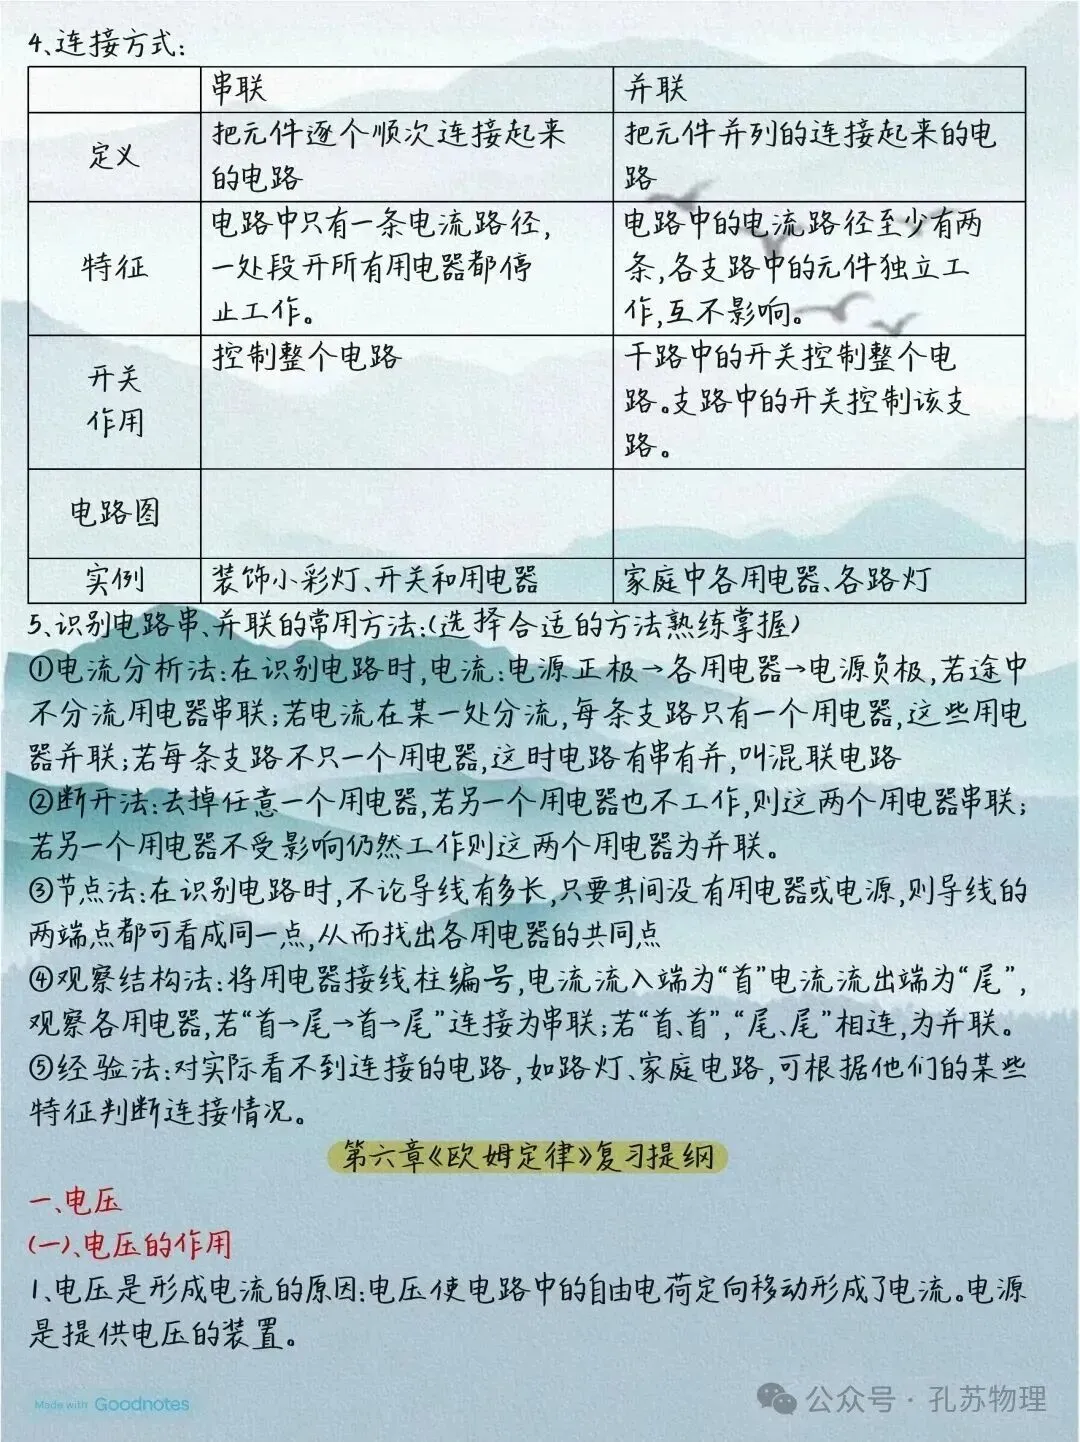 4、连接方式:
串联 并联
定义 把元件逐个顺次连接起来 把元件并列的连接起来的电
的电路 路
特征 电路中只有一条电流路径, 电路中的电流路径至少有两
一处段开所有用电器都停 条,各支路中的元件独立工
止工作。 作,互不影响。
开关 控制整个电路 干路中的开关控制整个电
作用 路。支路中的开关控制该支
路。
电路图
实例 装饰小彩灯、开关和用电器 家庭中各用电器、各路灯
5、识别电路串、并联的常用方法:(选择合适的方法熟练掌握)
①电流分析法:在识别电路时,电流:电源正极→各用电器→电源负极,若途中
不分流用电器串联;若电流在某一处分流,每条支路只有一个用电器,这些用电
器并联;若每条支路不只一个用电器,这时电路有串有并,叫混联电路
②断开法:去掉任意一个用电器,若另一个用电器也不工作,则这两个用电器串联;
若另一个用电器不受影响仍然工作则这两个用电器为并联。
③节点法:在识别电路时,不论导线有多长,只要其间没有用电器或电源,则导线的
两端点都可看成同一点,从而找出各用电器的共同点
④观察结构法:将用电器接线柱编号,电流流入端为“首”电流流出端为“尾”,
观察各用电器,若“首→尾→首→尾”连接为串联;若“首、首”,“尾、尾”相连,为并联。
⑤经验法:对实际看不到连接的电路,如路灯、家庭电路,可根据他们的某些
特征判断连接情况。
第六章《欧姆定律》复习提纲
一、电压
(一)、电压的作用
1、电压是形成电流的原因:电压使电路中的自由电荷定向移动形成了电流。电源
是提供电压的装置。
Made with Goodnotes
公众号·孔苏物理